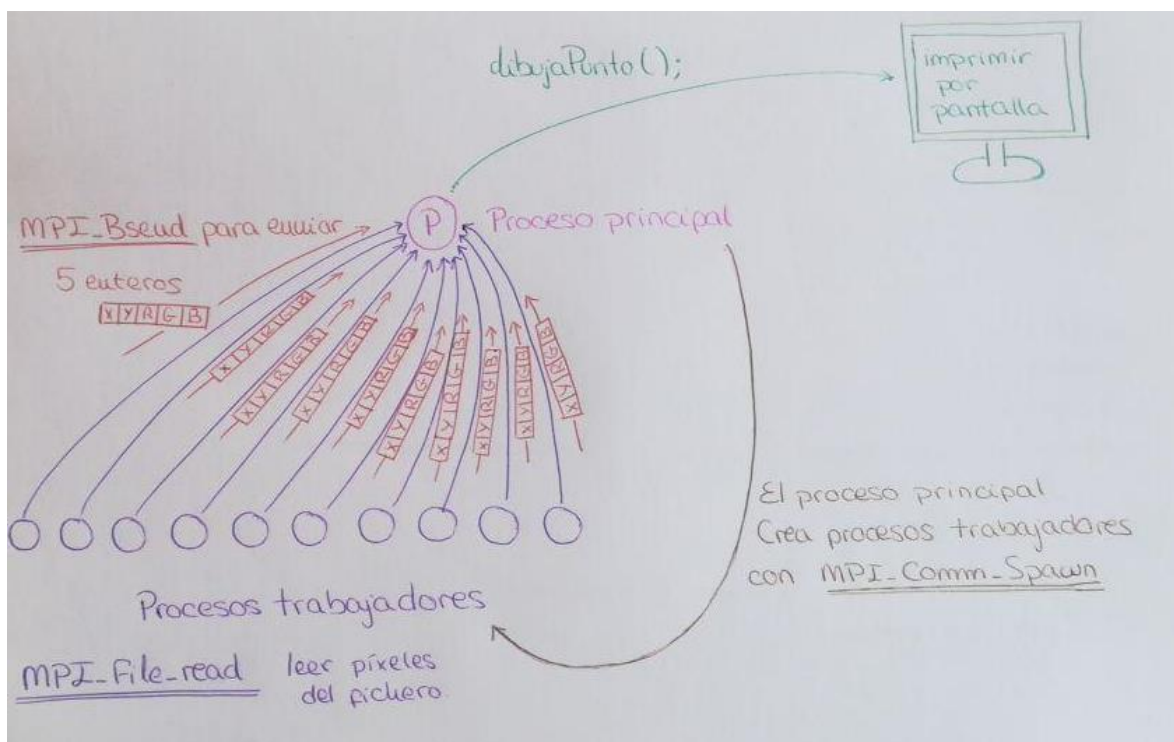 dibujaPunto();
imprimir
por
pantalla
MPI_Bsend para enviar
P
Proceso principal
5 enteros
X Y R G B
X Y R G B
X Y R G B
X Y R G B
X Y R G B
X Y R G B
X Y R G B
X Y R G B
X Y R G B
X Y R G B
El proceso principal
Crea procesos trabajadores
con MPI_Comm_Spawn
Procesos trabajadores
MPI_File_read leer píxeles
del fichero